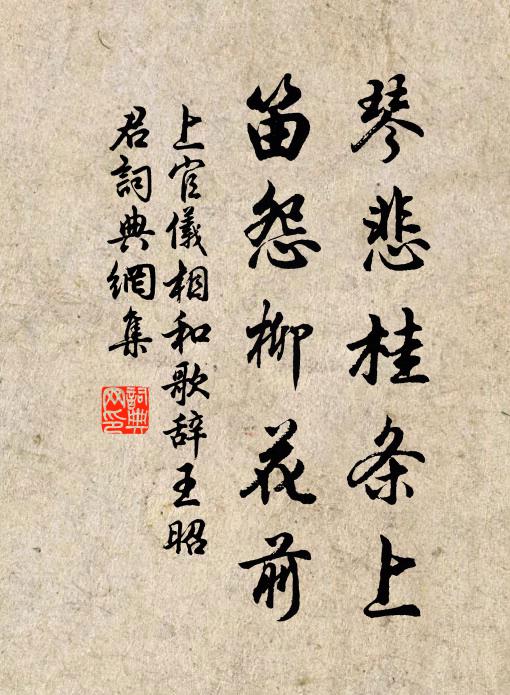 琴悲桂条上
笛怨柳花前
上官儀相和歌辞王昭
君詞典網集
詞典
网印